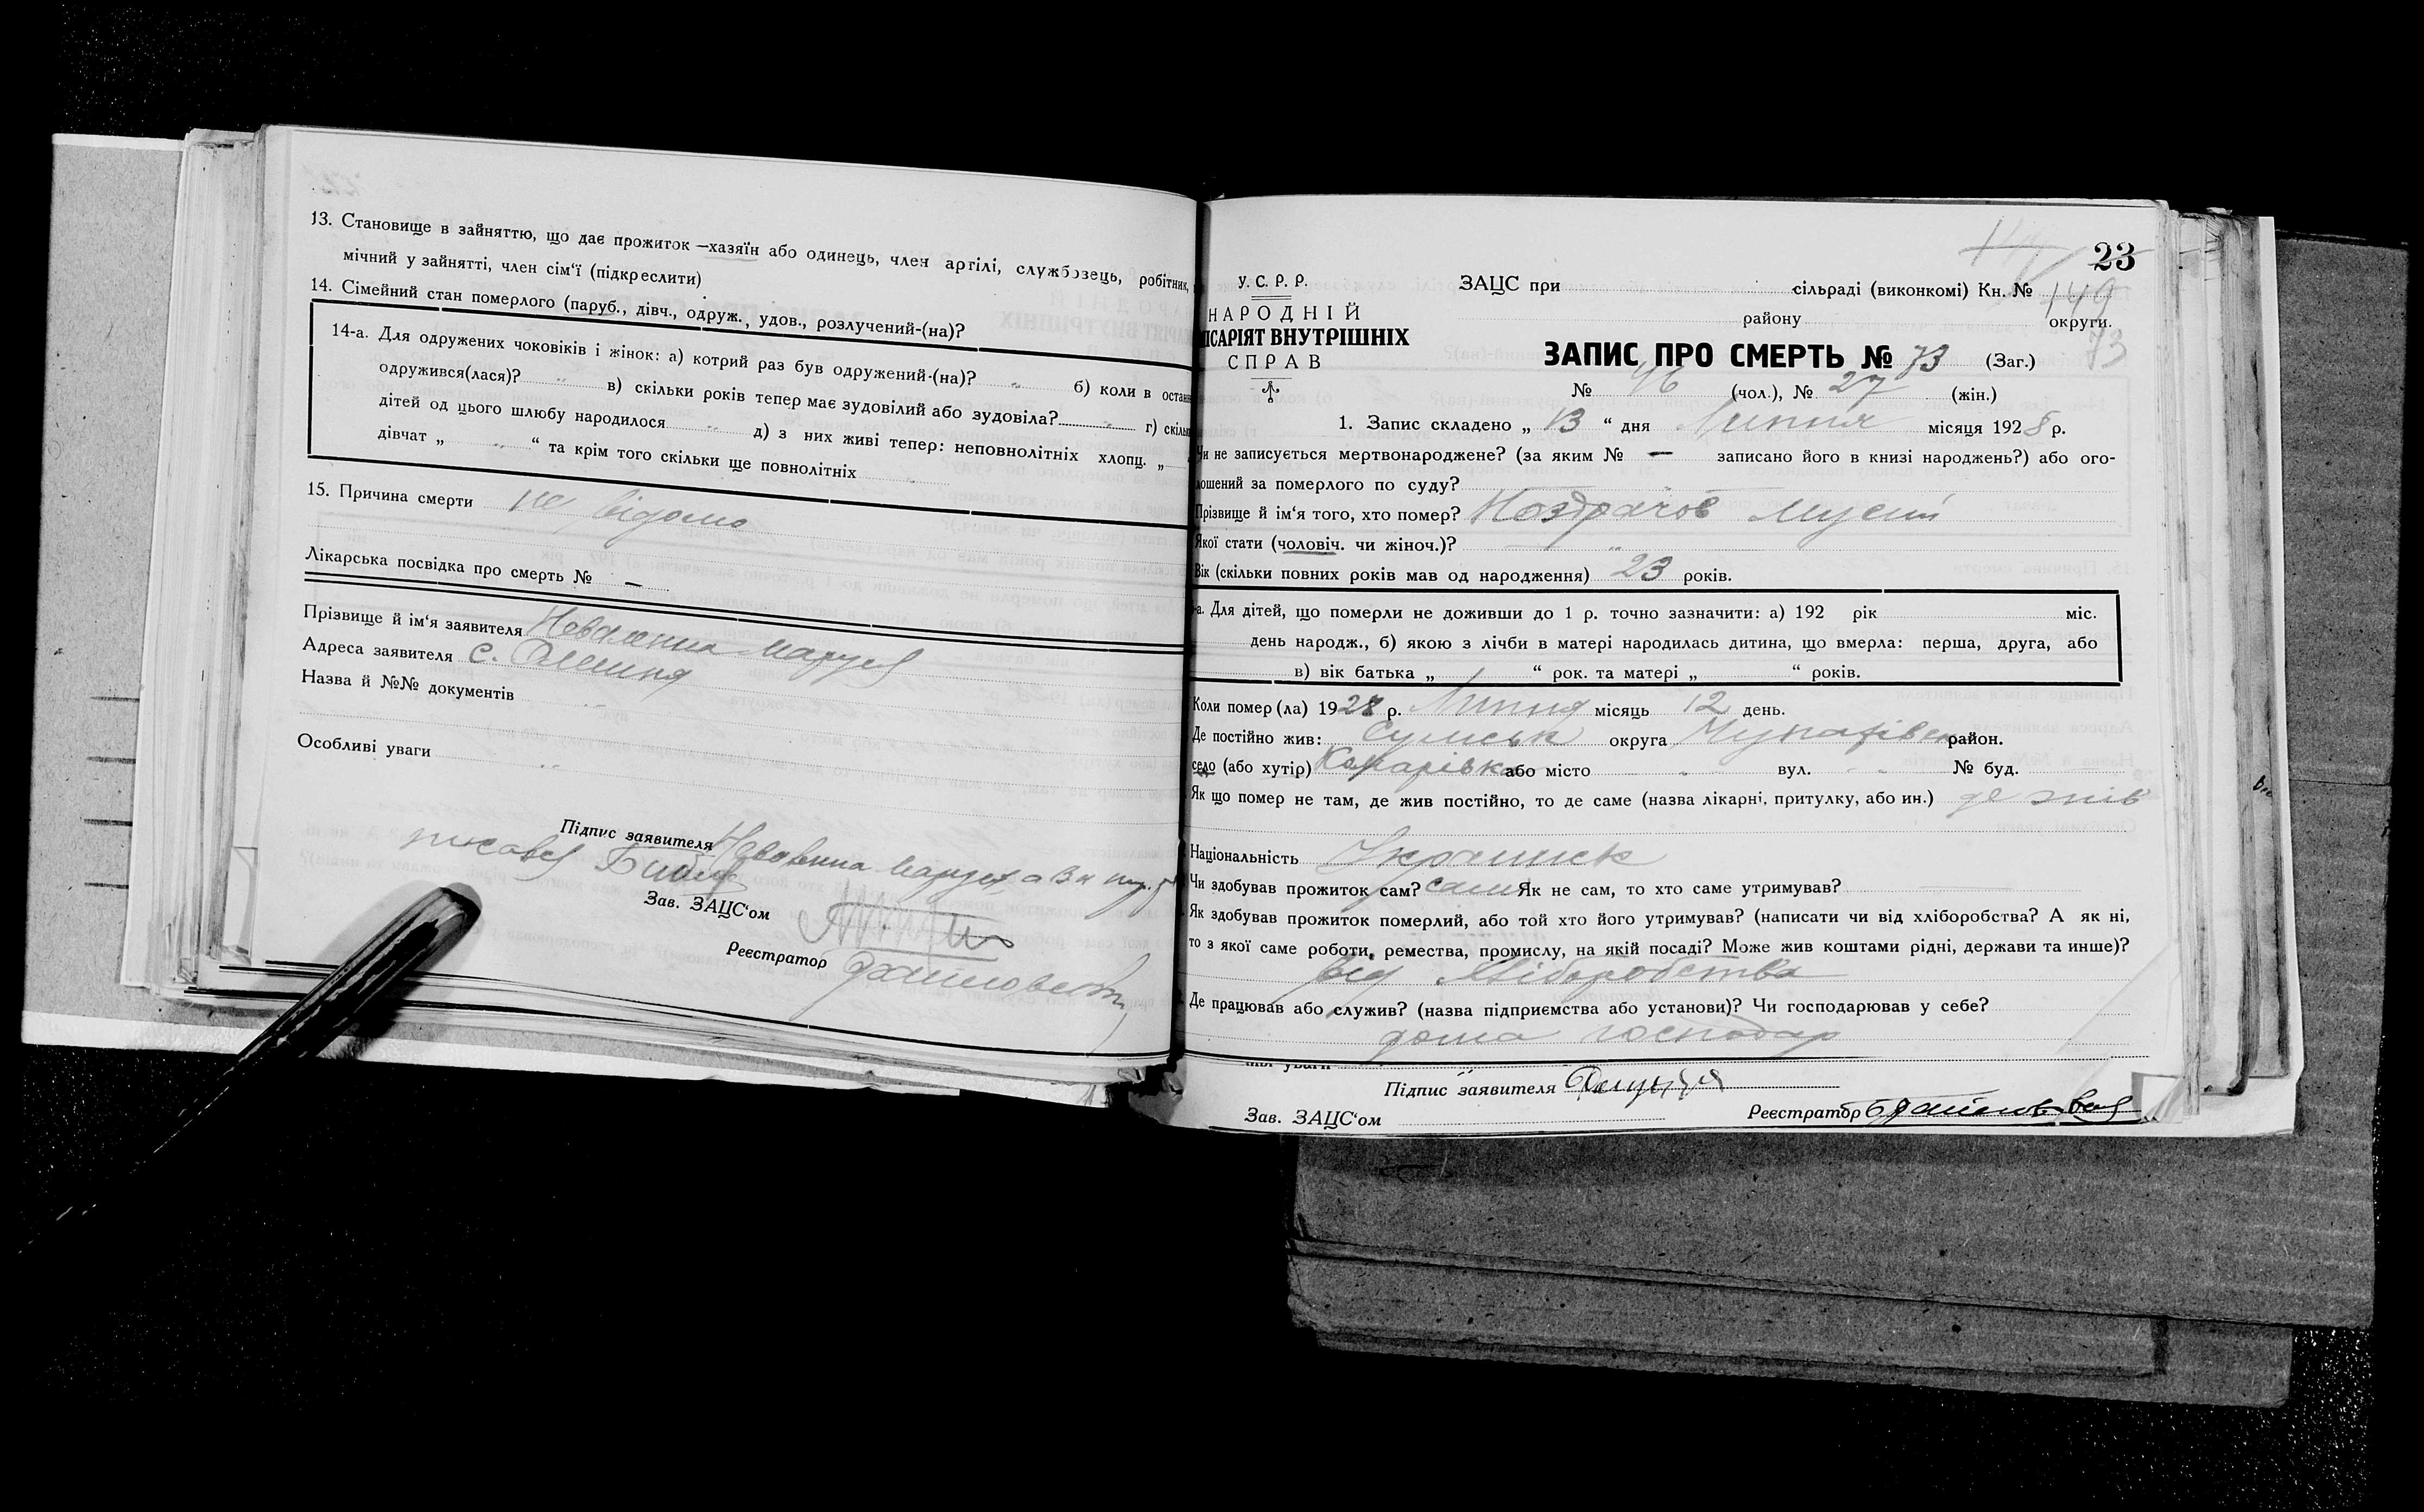 13. Становище в зайняттю, що дає прожиток—хазяїн або одинець, член артілі, службовець, робітник,
мічний у зайнятті, член сім'ї (підкреслити)
14. Сімейний стан померлого (паруб., дівч., одруж., удов., розлучений-(на)?
14-а. Для одружених чоковіків і жінок: а) котрий раз був одружений-(на)? „ б) коли в остан
одружився(лася)? „ в) скільки років тепер має зудовілий або зудовіла? „ г) скіль
дітей од цього шлюбу народилося „ д) з них живі тепер: неповнолітніх хлопц. „
дівчат „ „ “ та крім того скільки ще повнолітніх „
15. Причина смерти не відомо
Лікарська посвідка про смерть № —
Прізвище й ім'я заявителя
Адреса заявителя с.
Назва й №№ документів
Особливі уваги „
Підпис заявителя
Зав. ЗАЦС'ом
Реєстратор
23
У. С. Р. Р.
НАРОДНІЙ
ІСАРІЯТ ВНУТРІШНІХ
СПРАВ
ЗАЦС при сільраді (виконкомі) Кн. № 149
району округи.
73
ЗАПИС ПРО СМЕРТЬ № 73 (Заг.)
№ 46 (чол.), № 27 (жін.)
1. Запис складено „ 13 “ дня Липня місяця 1928 р.
Чи не записується мертвонароджене? (за яким № — записано його в книзі народжень?) або ого-
лошений за померлого по суду?
Прізвище й ім'я того, хто помер? Ноздрачов Мусій
Якої стати (чоловіч. чи жіноч.)? „
Вік (скільки повних років мав од народження) 23 років.
-а. Для дітей, що померли не доживши до 1 р. точно зазначити: а) 192 рік міс.
день народж., б) якою з лічби в матері народилась дитина, що вмерла: перша, друга, або
в) вік батька „ “ рок. та матері „ “ років.
Коли помер (ла) 1928 р. Липня місяць 12 день.
Де постійно жив: Сумськ округа район.
село (або хутір) або місто „ вул. „ № буд.
Як що помер не там, де жив постійно, то де саме (назва лікарні, притулку, або ин.) де жив
Національність Українськ
Чи здобував прожиток сам? сам Як не сам, то хто саме утримував?
Як здобував прожиток померлий, або той хто його утримував? (написати чи від хліборобства? А як ні,
то з якої саме роботи, ремества, промислу, на якій посаді? Може жив коштами рідні, держави та инше)?
від Хліборобства
Де працював або служив? (назва підприємства або установи)? Чи господарював у себе?
дома господар
Підпис заявителя
Зав. ЗАЦС'ом Реєстратор